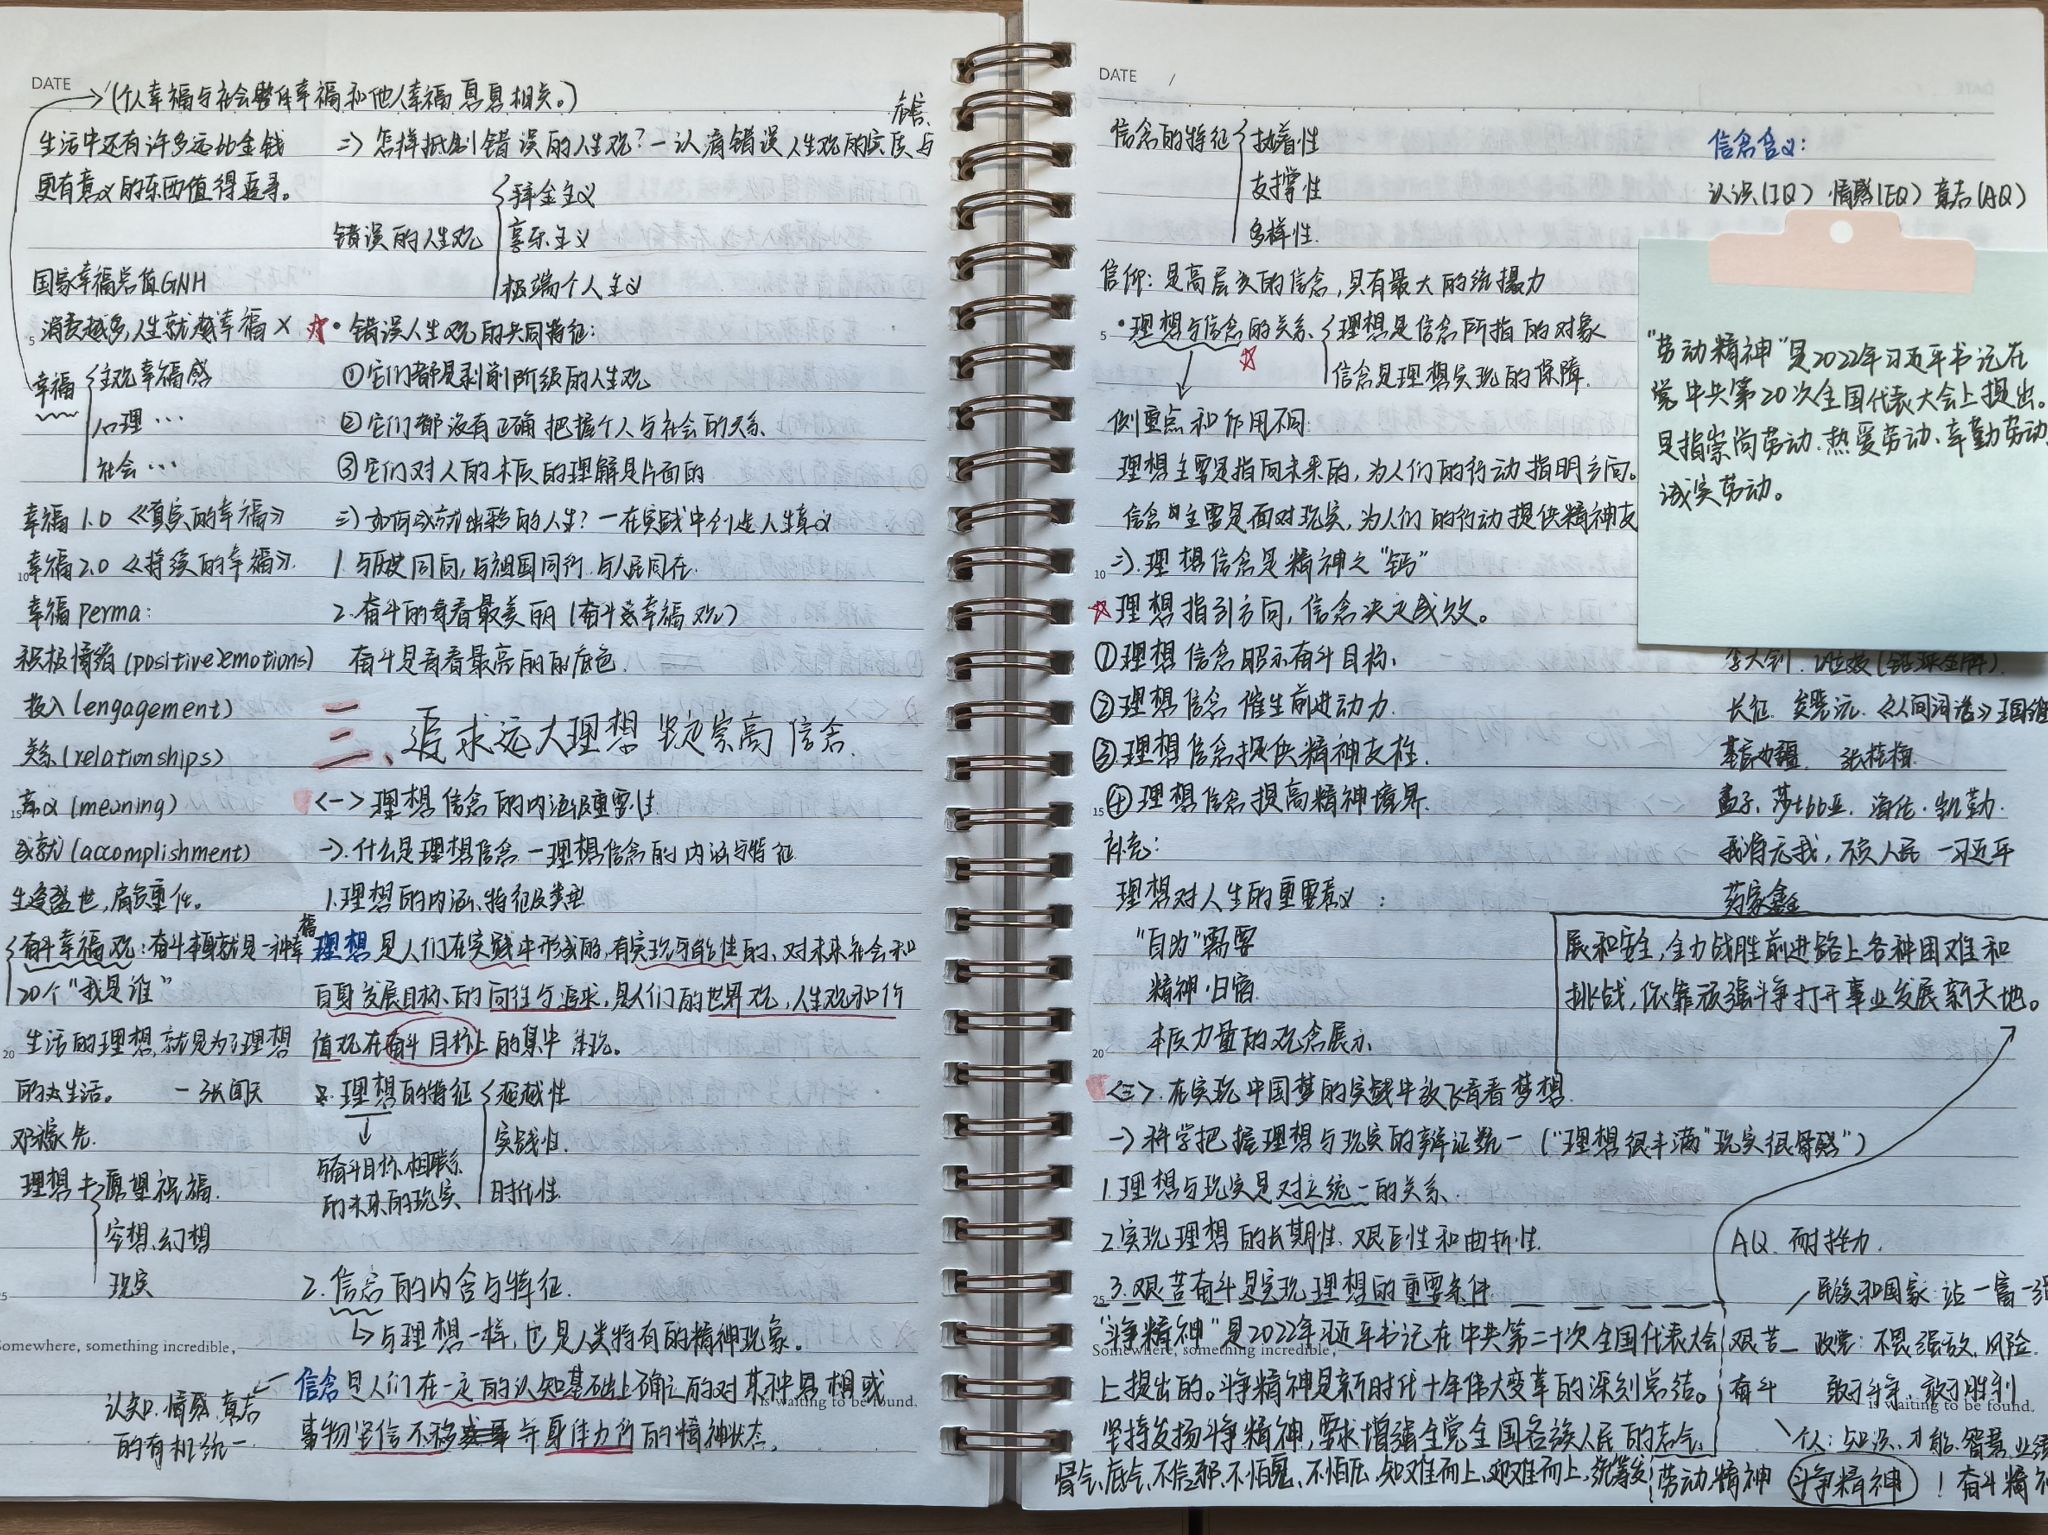 DATE
(个人幸福与社会整体幸福和他人幸福息息相关。)
生活中还有许多远比金钱
更有意义的东西值得追寻。
国家幸福总值GNH
消费越多,人生就越幸福 ×
幸福
主观幸福感
心理…
社会…
幸福 1.0 《真实的幸福》
幸福2.0 《持续的幸福》.
幸福 perma:
积极情绪(positive emotions)
投入(engagement)
关系(relationships)
意义(meaning)
成就(accomplishment)
生逢盛世,肩负重任。
奋斗幸福观:奋斗本身就是一种幸福
20个“我是谁”
生活的理想,就是为了理想
的生活。 —张闻天
邓稼先.
理想≠
愿望祝福.
空想、幻想
现实
认知、情感、意志
的有机统一.
危害.
二)怎样抵制错误的人生观?—认清错误人生观的实质与
错误的人生观
拜金主义
享乐主义
极端个人主义
·错误人生观的共同特征:
①它们都是剥削阶级的人生观
②它们都没有正确把握个人与社会的关系.
③它们对人的本质的理解是片面的
三)如何成就出彩的人生?—在实践中创造人生真义
1.与历史同向,与祖国同行.与人民同在.
2.奋斗的青春最美丽(奋斗幸福观)
奋斗是青春最亮丽的底色.
三、追求远大理想 坚定崇高信念.
<一>理想信念的内涵及重要性
一).什么是理想信念—理想信念的内涵与特征
1.理想的内涵、特征及类型
理想是人们在实践中形成的,有实现可能性的、对未来社会和
自身发展目标的向往与追求,是人们的世界观,人生观和价
值观在奋斗目标上的集中体现。
理想的特征
超越性
实践性.
时代性.
与奋斗目标相联系
的未来的现实
2.信念的内含与特征.
与理想一样,也是人类特有的精神现象。
信念是人们在一定的认知基础上确立的对某种思想或
事物坚信不移并身体力行的精神状态.
Somewhere, something incredible,
is waiting to be found.
DATE /
信念的特征
执着性
支撑性
多样性.
信念含义:
认识(IQ) 情感(EQ) 意志(AQ)
信仰:是高层次的信念,具有最大的统摄力
·理想与信念的关系
理想是信念所指的对象
信念是理想实现的保障.
侧重点和作用不同:
理想主要是指向未来的,为人们的行动指明方向。
信念主要是面对现实,为人们的行动提供精神支
“劳动精神”是2022年习近平书记在
党中央第20次全国代表大会上提出。
是指崇尚劳动.热爱劳动、辛勤劳动
诚实劳动。
二).理想信念是精神之“钙”
理想指引方向,信念决定成效。
①理想信念昭示奋斗目标.
②理想信念催生前进动力.
③理想信念提供精神支柱.
④理想信念提高精神境界.
补充:
理想对人生的重要意义:
“自助”需要
精神·归宿.
本质力量的观念展示.
长征. 《人间词话》王国维
张桂梅.
孟子、莎士比亚、海伦·凯勒.
我将无我,不负人民 —习近平
药家鑫
展和安全,全力战胜前进路上各种困难和
挑战,依靠顽强斗争打开事业发展新天地。
<二>.在实现中国梦的实践中放飞青春梦想.
一)科学把握理想与现实的辩证统一(“理想很丰满”现实很骨感”)
1.理想与现实是对立统一的关系.
2.实现理想的长期性、艰巨性和曲折性.
3.艰苦奋斗是实现理想的重要条件
“斗争精神”是2022年习近平书记在中共第二十次全国代表大会
上提出的。斗争精神是新时代十年伟大变革的深刻总结。
坚持发扬斗争精神,要求增强全党全国各族人民的志气、
骨气、底气、不信邪、不怕鬼、不怕压,知难而上、迎难而上,统筹发
AQ.耐挫力.
艰苦
奋斗
民族和国家:站—富—强
政党:不畏强敌,风险.
敢于斗争,敢于胜利
个人:知识、才能、智慧、业绩
劳动精神 斗争精神 ! 奋斗精神
Somewhere, something incredible,
is waiting to be found.